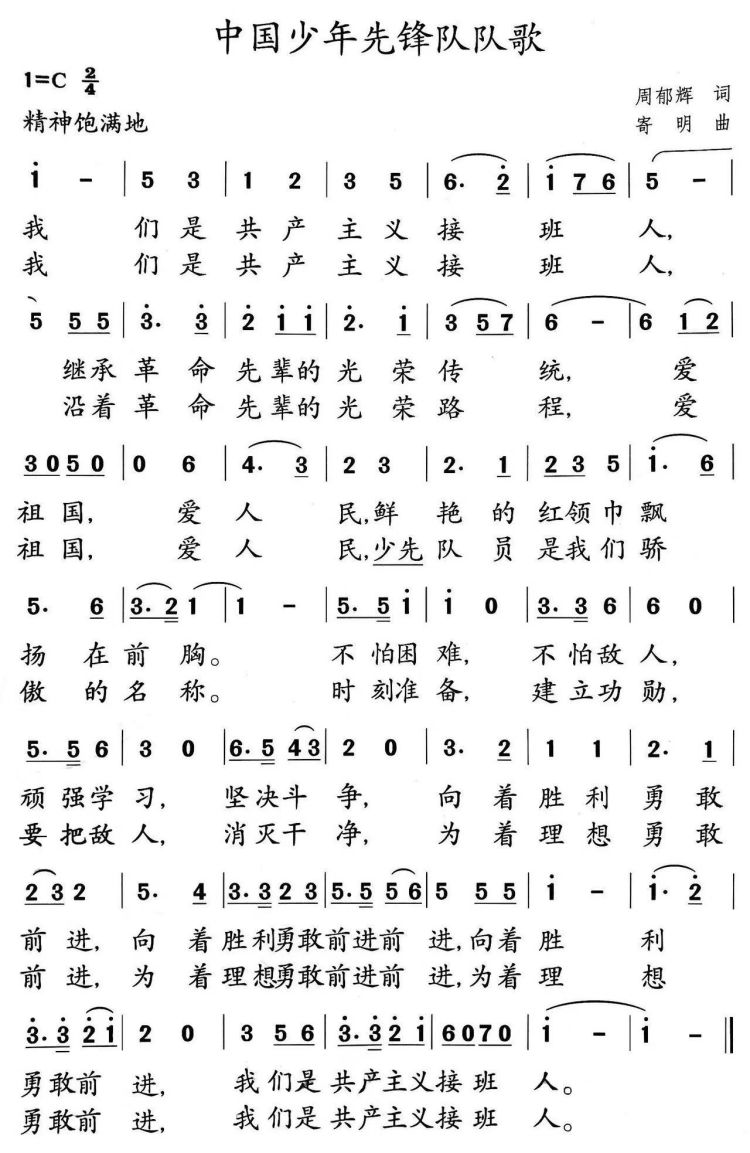 中国少年先锋队队歌
1=C 2/4
精神饱满地
周郁辉 词
寄明 曲
i - | 5 3 | 1 2 | 3 5 | 6· 2 | i 7 6 | 5 - |
我 们 是 共 产 主 义 接 班 人,
我 们 是 共 产 主 义 接 班 人,
5 5 5 | 3· 3 | 2 i i | 2· i | 3 5 7 | 6 - | 6 1 2 |
继承 革 命 先 辈的 光 荣 传 统, 爱
沿着 革 命 先 辈的 光 荣 路 程, 爱
3 0 5 0 | 0 6 | 4· 3 | 2 3 | 2· 1 | 2 3 5 | i· 6 |
祖 国, 爱 人 民,鲜 艳 的 红领 巾 飘
祖 国, 爱 人 民,少先 队 员 是我 们 骄
5· 6 | 3· 2 1 | 1 - | 5· 5 i | i 0 | 3· 3 6 | 6 0 |
扬 在 前 胸。 不 怕困 难, 不 怕敌 人,
傲 的 名 称。 时 刻准 备, 建 立功 勋,
5· 5 6 | 3 0 | 6· 5 4 3 | 2 0 | 3· 2 | 1 1 | 2· 1 |
顽 强学 习, 坚 决斗 争, 向 着 胜 利 勇 敢
要 把敌 人, 消 灭干 净, 为 着 理 想 勇 敢
2 3 2 | 5· 4 | 3· 3 2 3 | 5· 5 5 6 | 5 5 5 | i - | i· 2 |
前 进, 向 着 胜利勇敢前进前 进,向着 胜 利
前 进, 为 着 理想勇敢前进前 进,为着 理 想
3· 3 2 i | 2 0 | 3 5 6 | 3· 3 2 i | 6 0 7 0 | i - | i - ‖
勇敢前 进, 我 们是 共产主义接 班 人。
勇敢前 进, 我 们是 共产主义接 班 人。